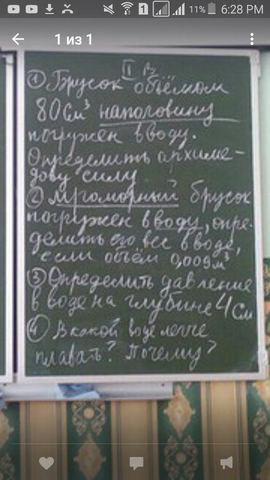 11% 6:28 PM
1 из 1
II в
① Брусок объёмом
80 см³ наполовину
погружен в воду.
Определить архиме-
дову силу
② Мраморный брусок
погружен в воду, опре-
делить его вес в воде,
если объём 0,009 м³
③ Определить давление
в воде на глубине 4 см
④ В какой воде легче
плавать? Почему?